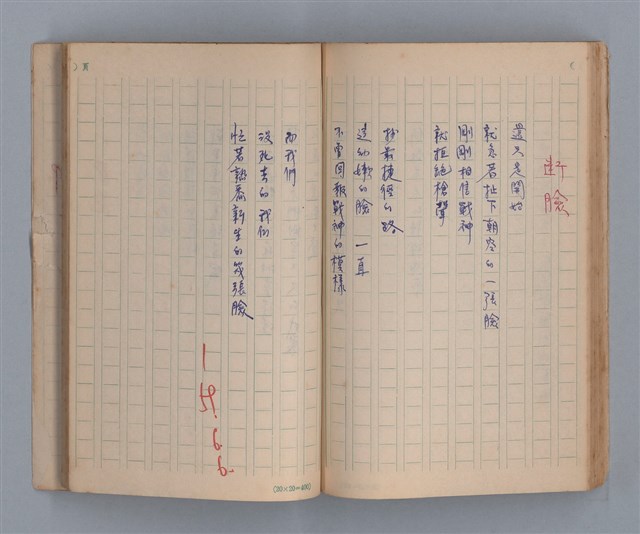 斷臉
還只是開始
就急著扯下朝空的一張臉
剛剛相信戰神
就拒絕槍聲
抄最捷徑的路
這的嫩的臉 一直
不會回報戰神的模樣
而我們
沒死去的我們
忙著熟番新生的幾張臉
一59.6.6.
頁
(20×20=400)